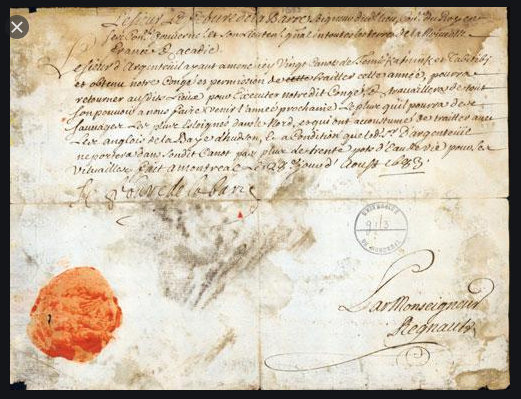 Le sieur Le febure de la Barre Seigneur dud. lieu, du Roy en
ses Gouverneur et son Lieutenant les terres de la Nouvelle
France & acadie
Le sieur d'Argenteuil ayant amené icy Vingt Canots de et
et obtenu notre Congé et permission de traitter cette année, pourra
retourner ausdits Lieux pour Executer notredit Congé & travaillera de tout
son pouvoir a nous faire venir l'année prochaine Le plus quil pourra de
sauvages Les plus Esloignés dans le Nord, et qui ont accoustumés de traitter avec
Les anglois de la Baye d'hudson, & a Condition que led. sr. d'argenteuil
ne portera dans sondit Canot pas plus de trente pots d'Eau de vie pour ses
victuailles fait a montreal Le jour d'Aoust 1683
Le febure de la barre
UNIVERSITÉ
DE MONTREAL
Par Monseigneur
Regnault